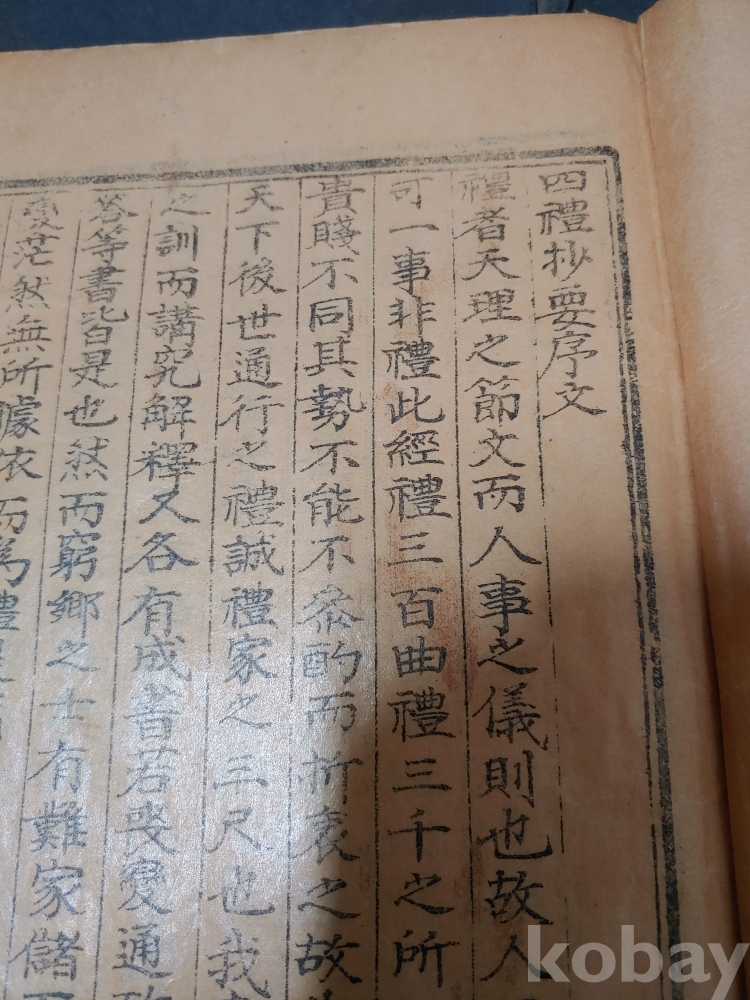 四禮抄要序文
禮者天理之節文而人事之儀則也故人
可一事非禮此經禮三百曲禮三千之所
貴賤不同其勢不能不叅酌而折衷之故
天下後世通行之禮誠禮家之三尺也我
之訓而講究解釋又各有成書若喪變通
答等書皆是也然而窮鄉之士有難家儲
茫然無所據依而爲禮
kobay